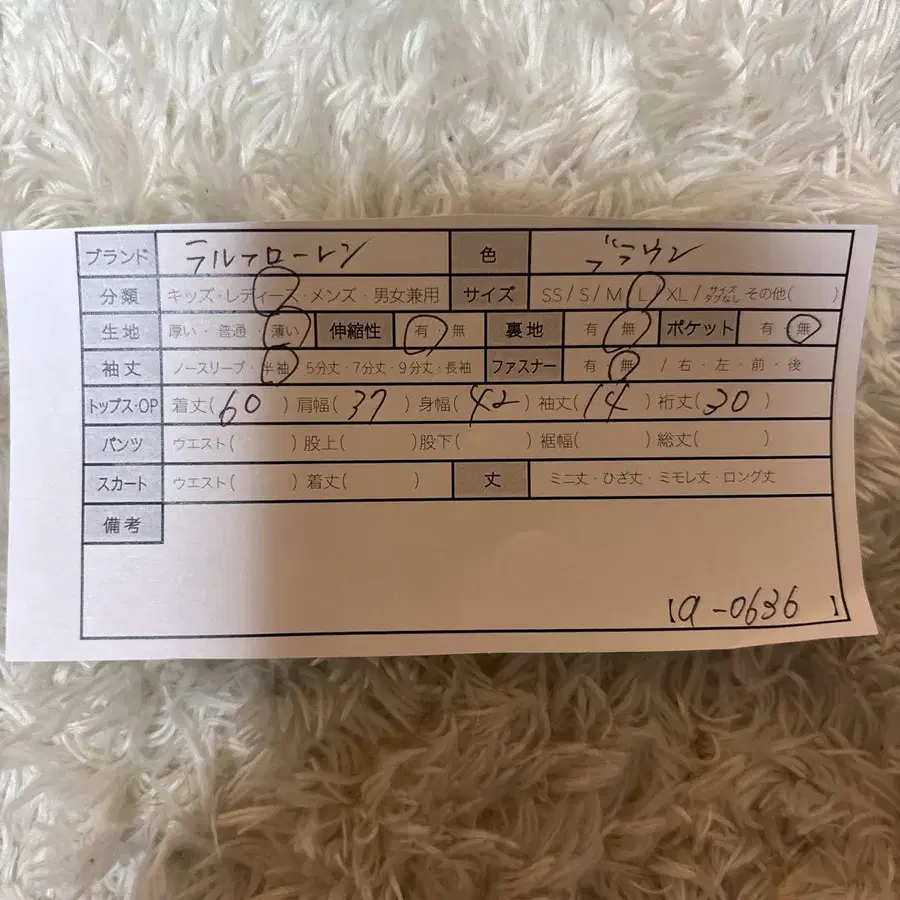 ブランド ラルフローレン 色 ブラウン
分類 キッズ・レディース・メンズ・男女兼用 サイズ SS/S/M/L/XL/サイズタグなし その他( )
生地 厚い・普通・薄い 伸縮性 有・無 裏地 有・無 ポケット 有・無
袖丈 ノースリーブ・半袖・5分丈・7分丈・9分丈・長袖 ファスナー 有・無 /右・左・前・後
トップス・OP 着丈(60)肩幅(37)身幅(42)袖丈(14)裄丈(30)
パンツ ウエスト( )股上( )股下( )裾幅( )総丈( )
スカート ウエスト( )着丈( ) 丈 ミニ丈・ひざ丈・ミモレ丈・ロング丈
備考
【a-0636 】